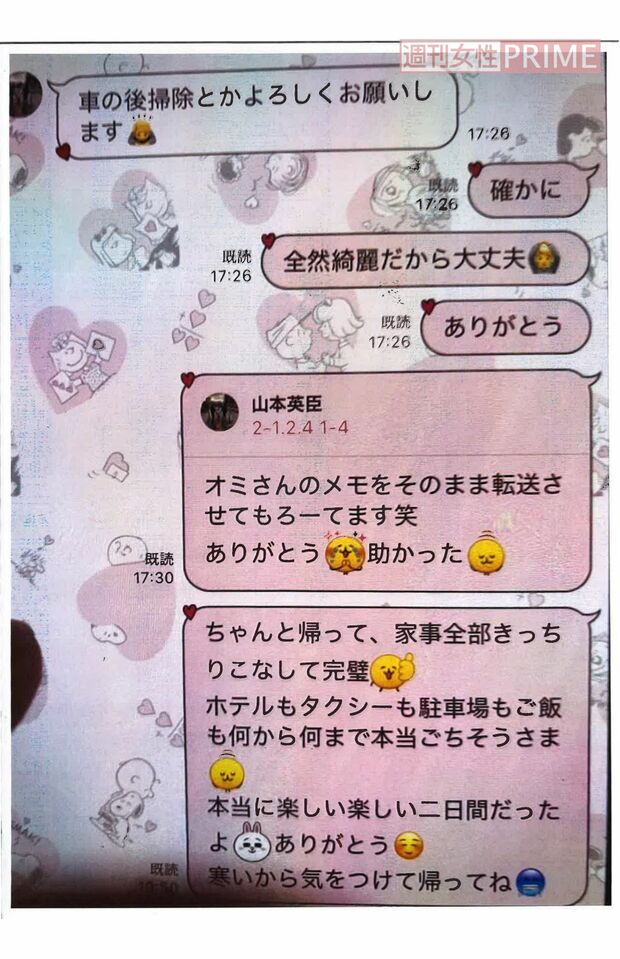 週刊女性PRIME
車の後掃除とかよろしくお願いし
ます
17:26
確かに
既読
17:26
全然綺麗だから大丈夫
既読
17:26
ありがとう
既読
17:26
山本英臣
2-1.2.4 1-4
オミさんのメモをそのまま転送さ
せてもろーてます笑
ありがとう助かった
既読
17:30
ちゃんと帰って、家事全部きっち
りこなして完璧
ホテルもタクシーも駐車場もご飯
も何から何まで本当ごちそうさま
本当に楽しい楽しい二日間だった
よありがとう
寒いから気をつけて帰ってね
既読